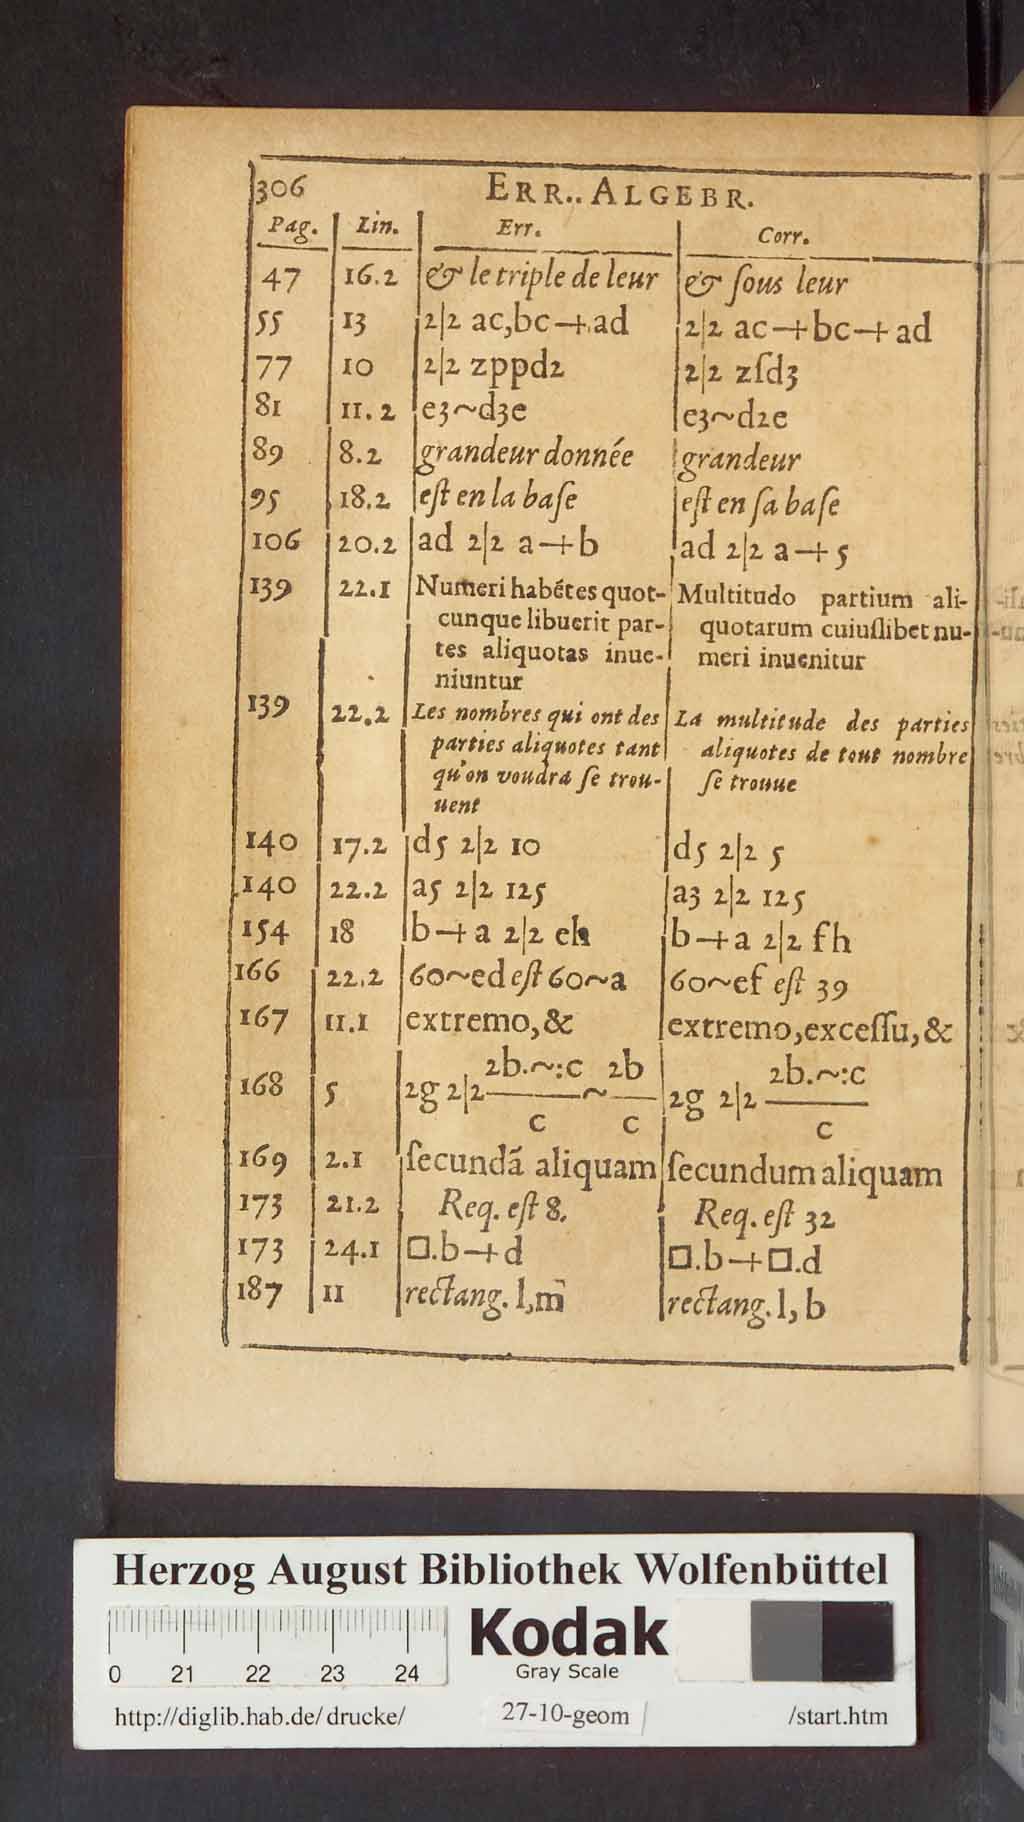 306 ERR.. ALGEBR.
Pag. Lin. Err. Corr.
47 16.2 & le triple de leur & ſous leur
55 13 2|2 ac,bc-+.ad 2|2 ac-+bc-+ad
77 10 2|2 zppd2 2|2 zſd3
81 11.2 e3~d3e e3~d2e
89 8.2 grandeur donnée grandeur
95 18.2 eſt en la baſe eſt en ſa baſe
106 20.2 ad 2|2 a-+b ad 2|2 a-+5
139 22.1 Numeri habētes quot- Multitudo partium ali-
cunque libuerit par- quotarum cuiuſlibet nu-
tes aliquotas inue- meri inuenitur
niuntur
139 22.2 Les nombres qui ont des La multitude des parties
parties aliquotes tant aliquotes de tout nombre
qu'on voudra ſe trou- ſe trouue
uent
140 17.2 d5 2|2 10 d5 2|2 5
140 22.2 a5 2|2 125 a3 2|2 125
154 18 b-+a 2|2 eh b-+a 2|2 fh
166 22.2 60~ed eſt 60~a 60~ef eſt 39
167 11.1 extremo,& extremo,exceſſu,&
2b.~:c 2b 2b.~:c
168 5 2g 2|2 ~ 2g 2|2
c c c
169 2.1 ſecundā aliquam ſecundum aliquam
173 21.2 Req. eſt 8. Req. eſt 32
173 24.1 □.b-+d □.b-+□.d
187 11 rectang. l,m rectang. l, b
Herzog August Bibliothek Wolfenbüttel
Kodak
Gray Scale
0 21 22 23 24
http://diglib.hab.de/drucke/ 27-10-geom /start.htm